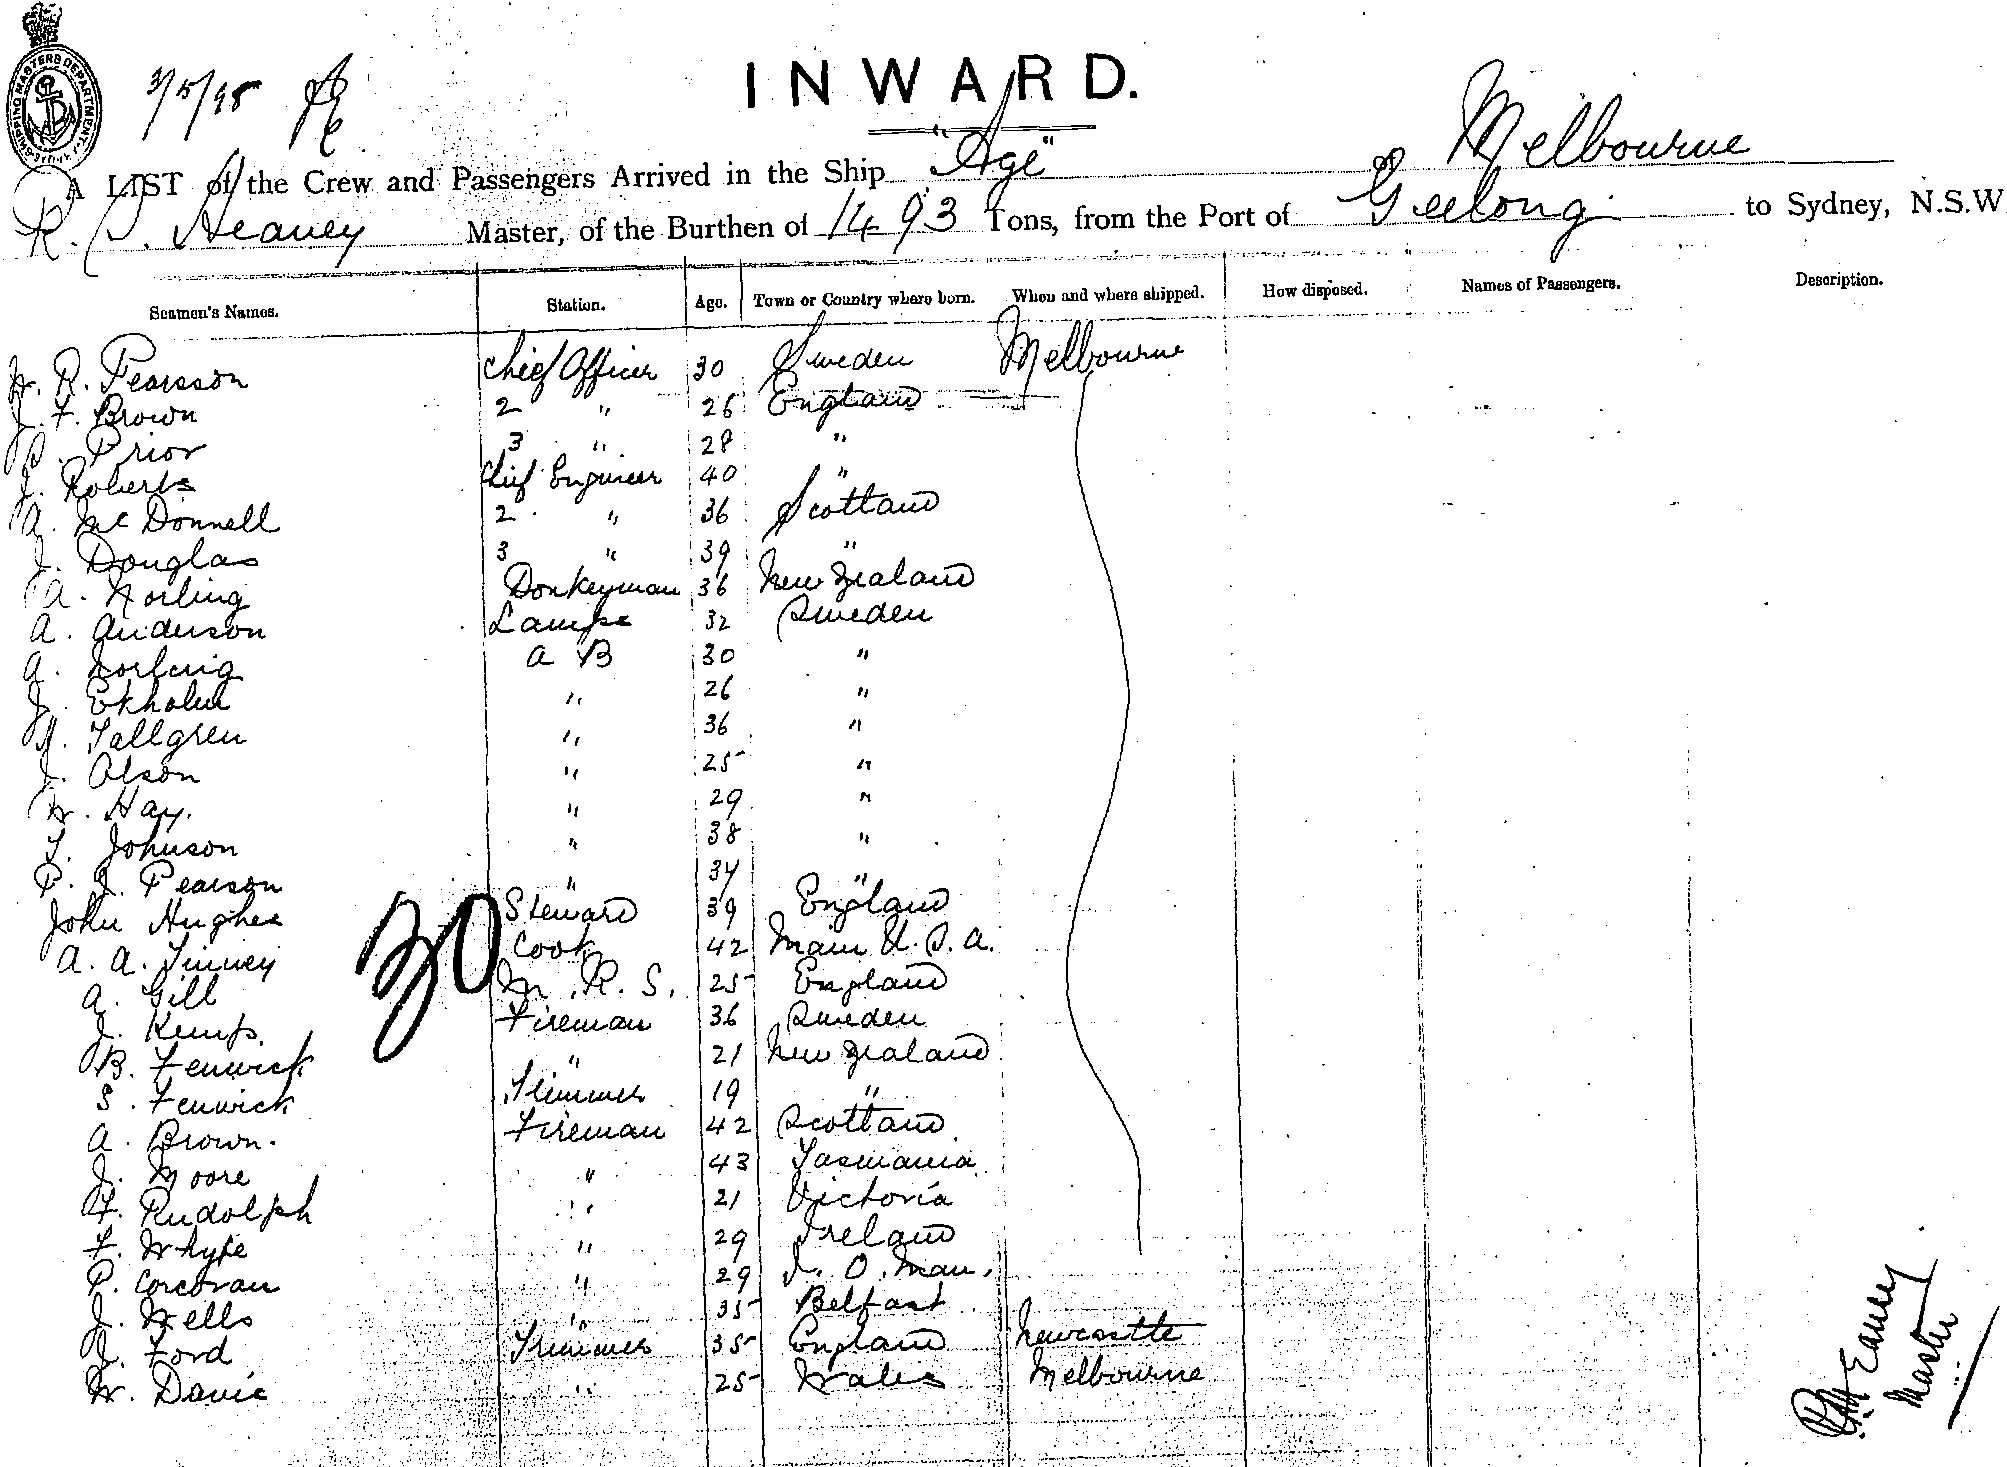 SHIPPING MASTERS DEPARTMENT
3/5/98
INWARD.
Melbourne
A LIST of the Crew and Passengers Arrived in the Ship "Age" &
R. J. Heaney Master, of the Burthen of 1493 Tons, from the Port of Geelong to Sydney, N.S.W
Seamen's Names. Station. Age. Town or Country where born. When and where shipped. How disposed. Names of Passengers. Description.
W. R. Pearsson Chief Officer 30 Sweden Melbourne
J. F. Brown 2 " 26 England
Prior 3 " 28 "
J. Roberts Chief Engineer 40 "
A. McDonnell 2 " 36 Scotland
J. Douglas 3 " 39 "
A. Norling Donkeyman 36 New Zealand
A. Anderson Lamps 32 Sweden
A. A B 30 "
J. Ekholm " 26 "
Tallgren " 36 "
J. Olson " 25 "
W. Hay. " 29 "
T. Johnson " 38 "
P. J. Pearson " 34 "
John Hughes Steward 39 England
A. A. Tinney Cook 42 Main U.S.A.
A. Gill M.R.S. 25 England
J. Kemp. Fireman 36 Sweden
B. Fenwick " 21 New Zealand
S. Fenwick Trimmer 19 "
A. Brown. Fireman 42 Scotland
J. Moore " 43 Tasmania
F. Rudolph " 21 Victoria
F. Whyte " 29 Ireland
P. Corcoran " 29 I. O. Man.
J. Wells " 35 Belfast
J. Ford Trimmer 35 England Newcastle
W. Davie " 25 Wales Melbourne
30
Master